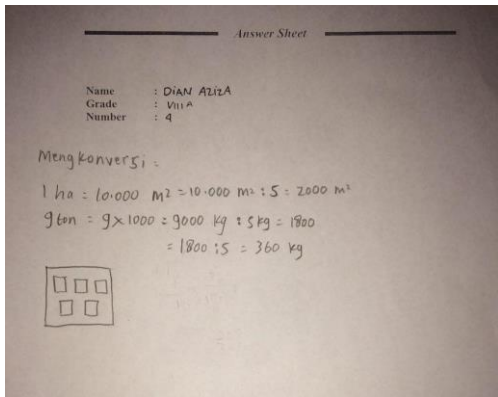 Answer Sheet
Name : DIAN AZIZA
Grade : VIII A
Number : 4
Mengkonversi :
1 ha = 10.000 m² = 10.000 m² : 5 = 2000 m²
9 ton = 9 x 1000 = 9000 kg : 5 kg = 1800
= 1800 : 5 = 360 kg